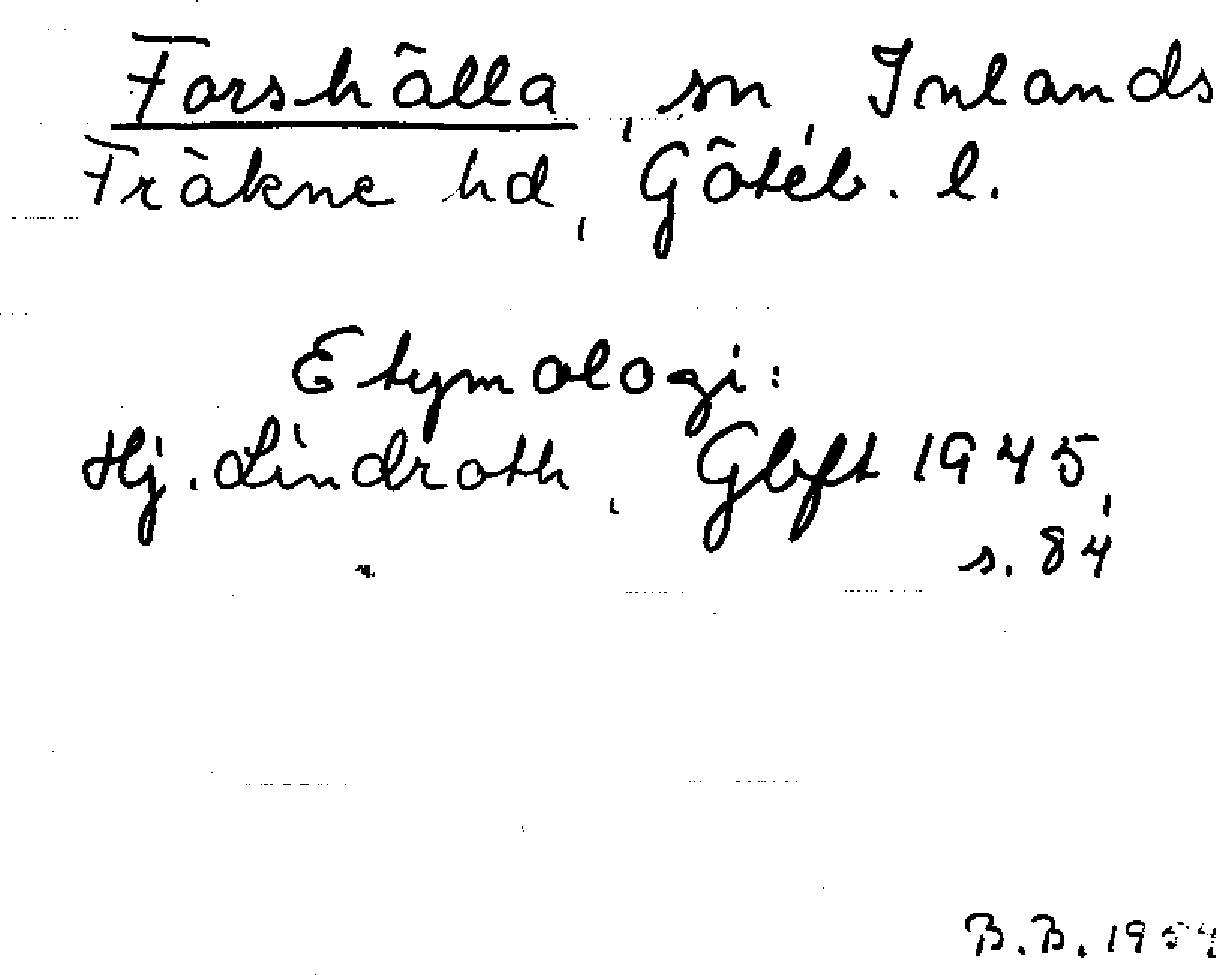 Forshälla, sn, Inlands
Fräkne hd, Göteb. l.
Etymologi:
Hj. Lindroth, Gbft 1945,
s. 84
B.B. 1954